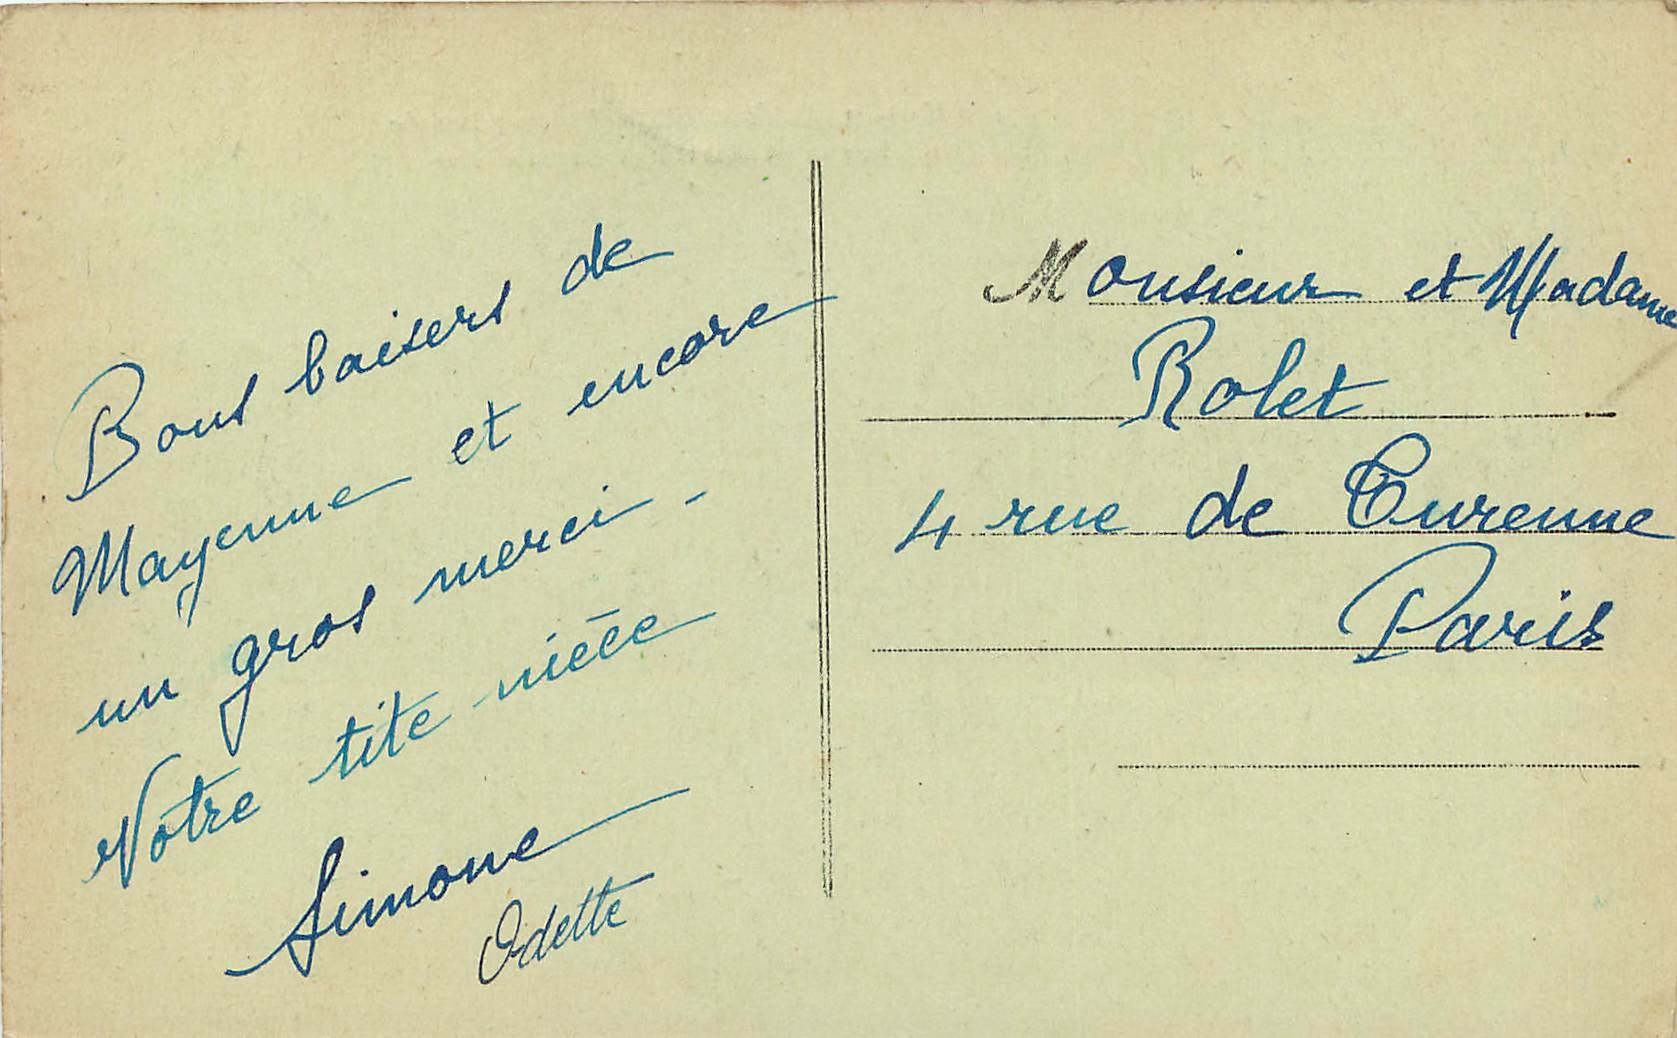 Bons baisers de
Mayenne et encore
un gros merci -
Votre tite nièce
Simone
Odette
Monsieur et Madame
Rolet
4 rue de Turenne
Paris